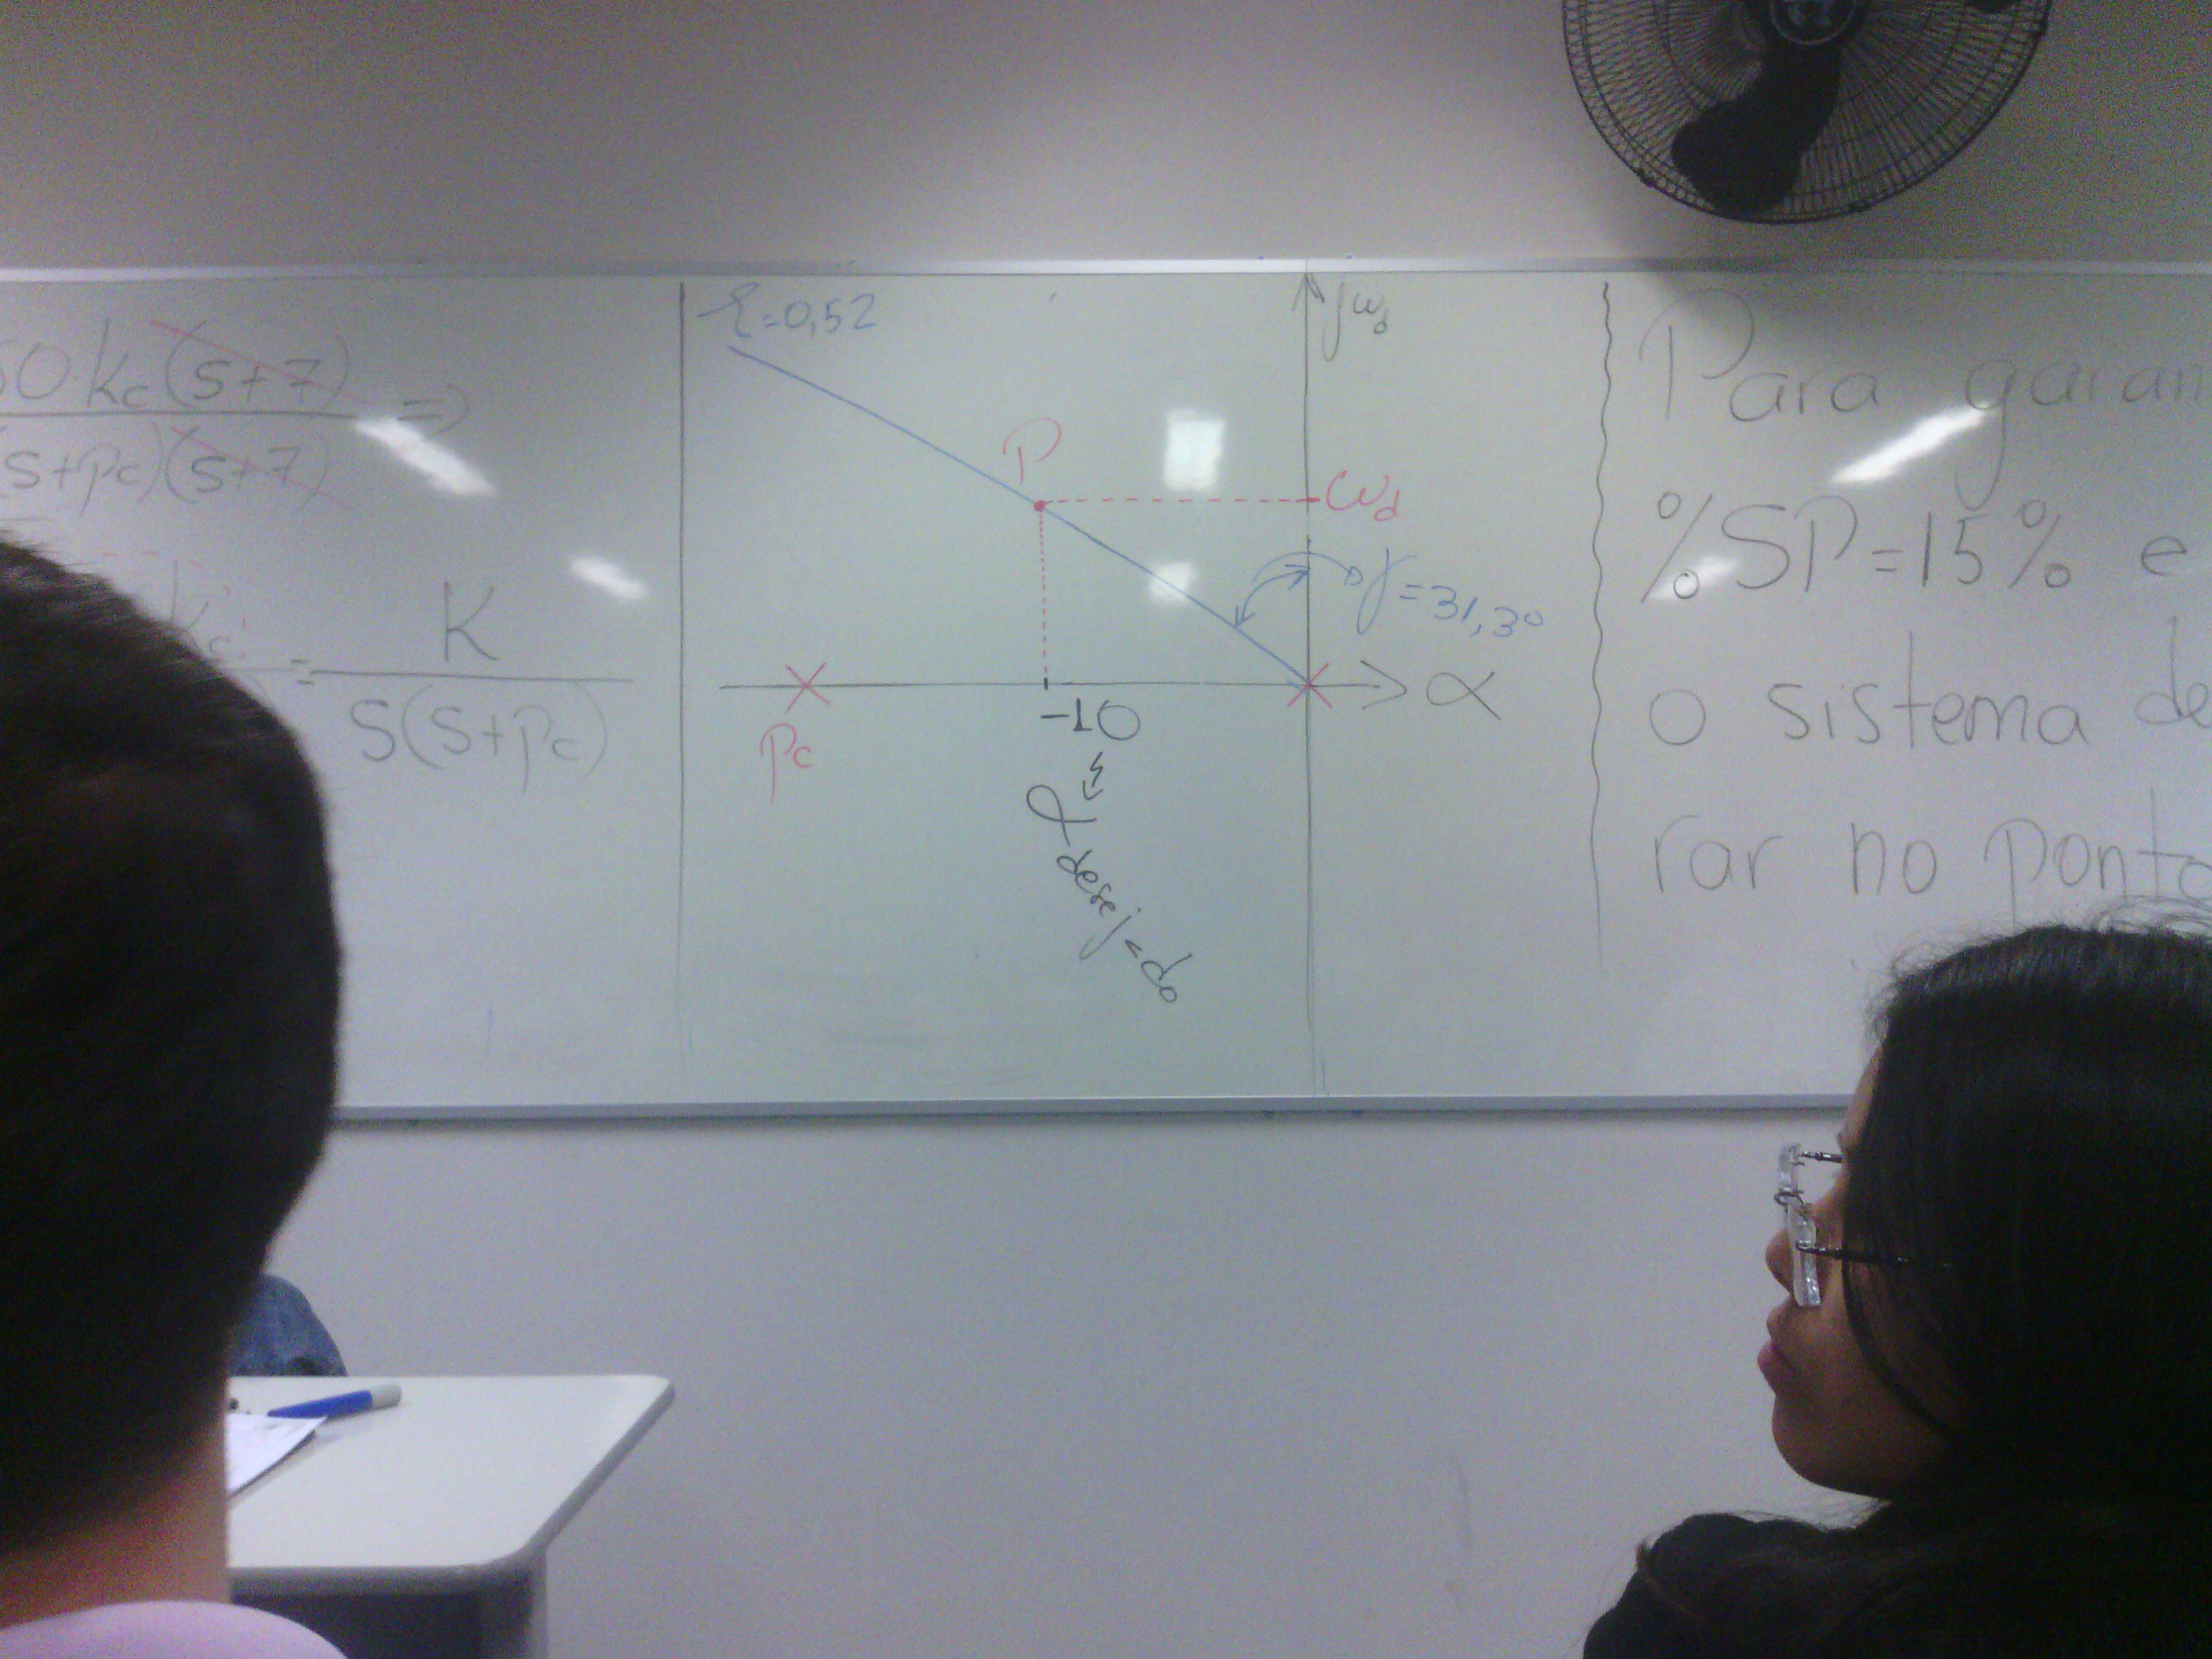 0.kc(s+7) =>
(s+pc)(s+7)
= K
S(S+pc)
ξ=0,52
jωd
P
ωd
γ=31,3°
α
pc
-10
α desejado
Para garan
%SP=15% e
o sistema de
rar no ponto